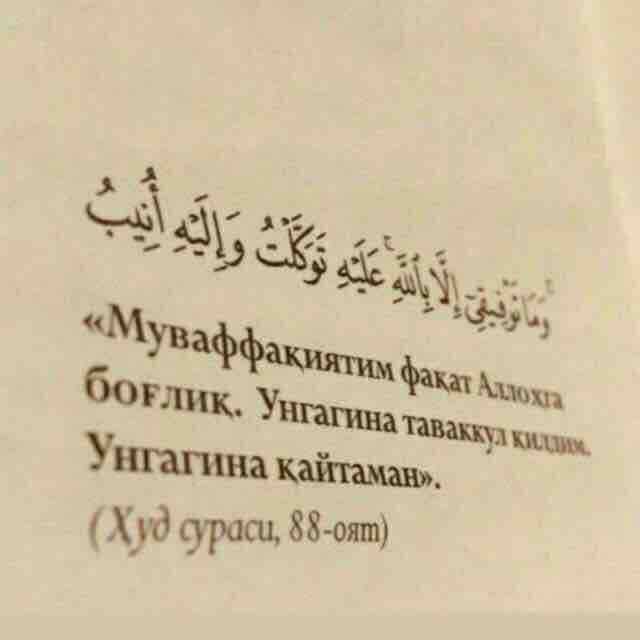 وَمَا تَوْفِيقِىٓ إِلَّا بِٱللَّهِ ۚ عَلَيْهِ تَوَكَّلْتُ وَإِلَيْهِ أُنِيبُ
«Муваффақиятим фақат Аллоҳга
боғлиқ. Унгагина таваккул қилдим.
Унгагина қайтаман».
(Ҳуд сураси, 88-оят)